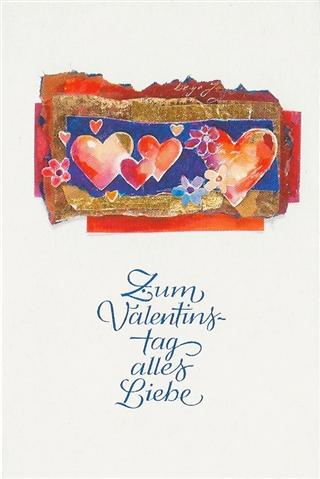 Zum
Valentins-
tag
alles
Liebe